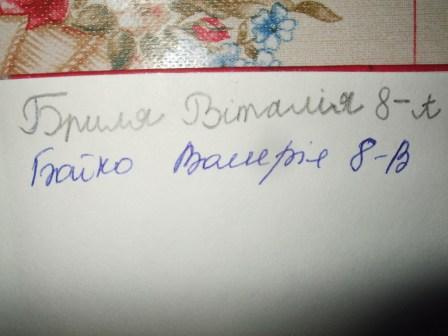 Бриля Віталія 8-А
Бойко Валерія 8-В